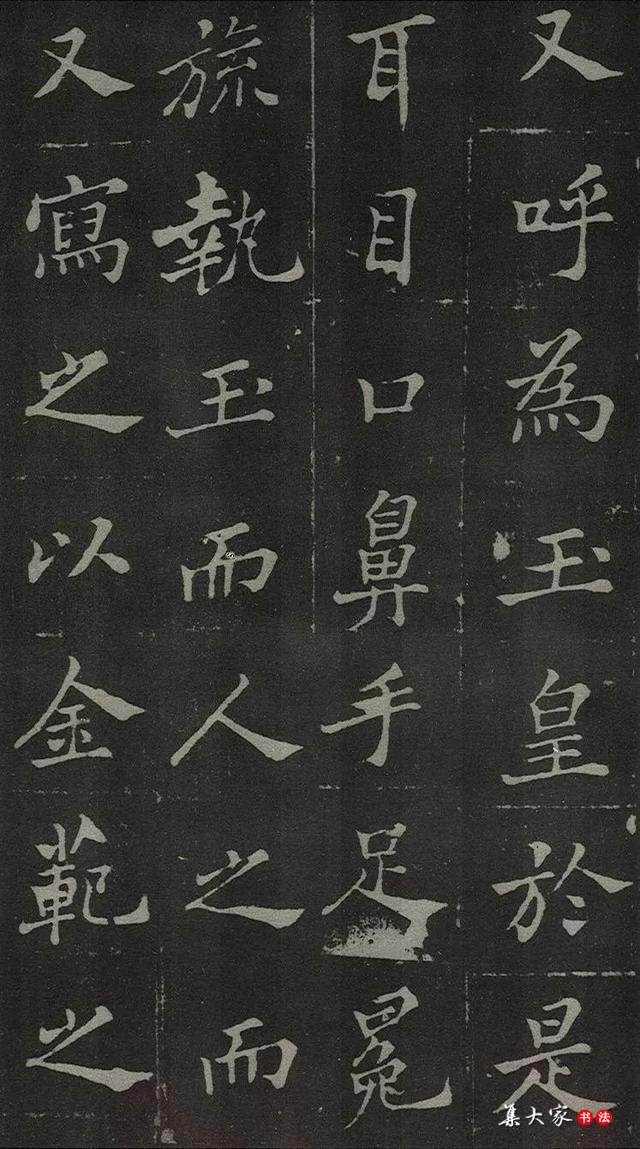 又呼為玉皇於是
耳目口鼻手足冕
旒執玉而人之而
又寫之以金範之
集大家书法